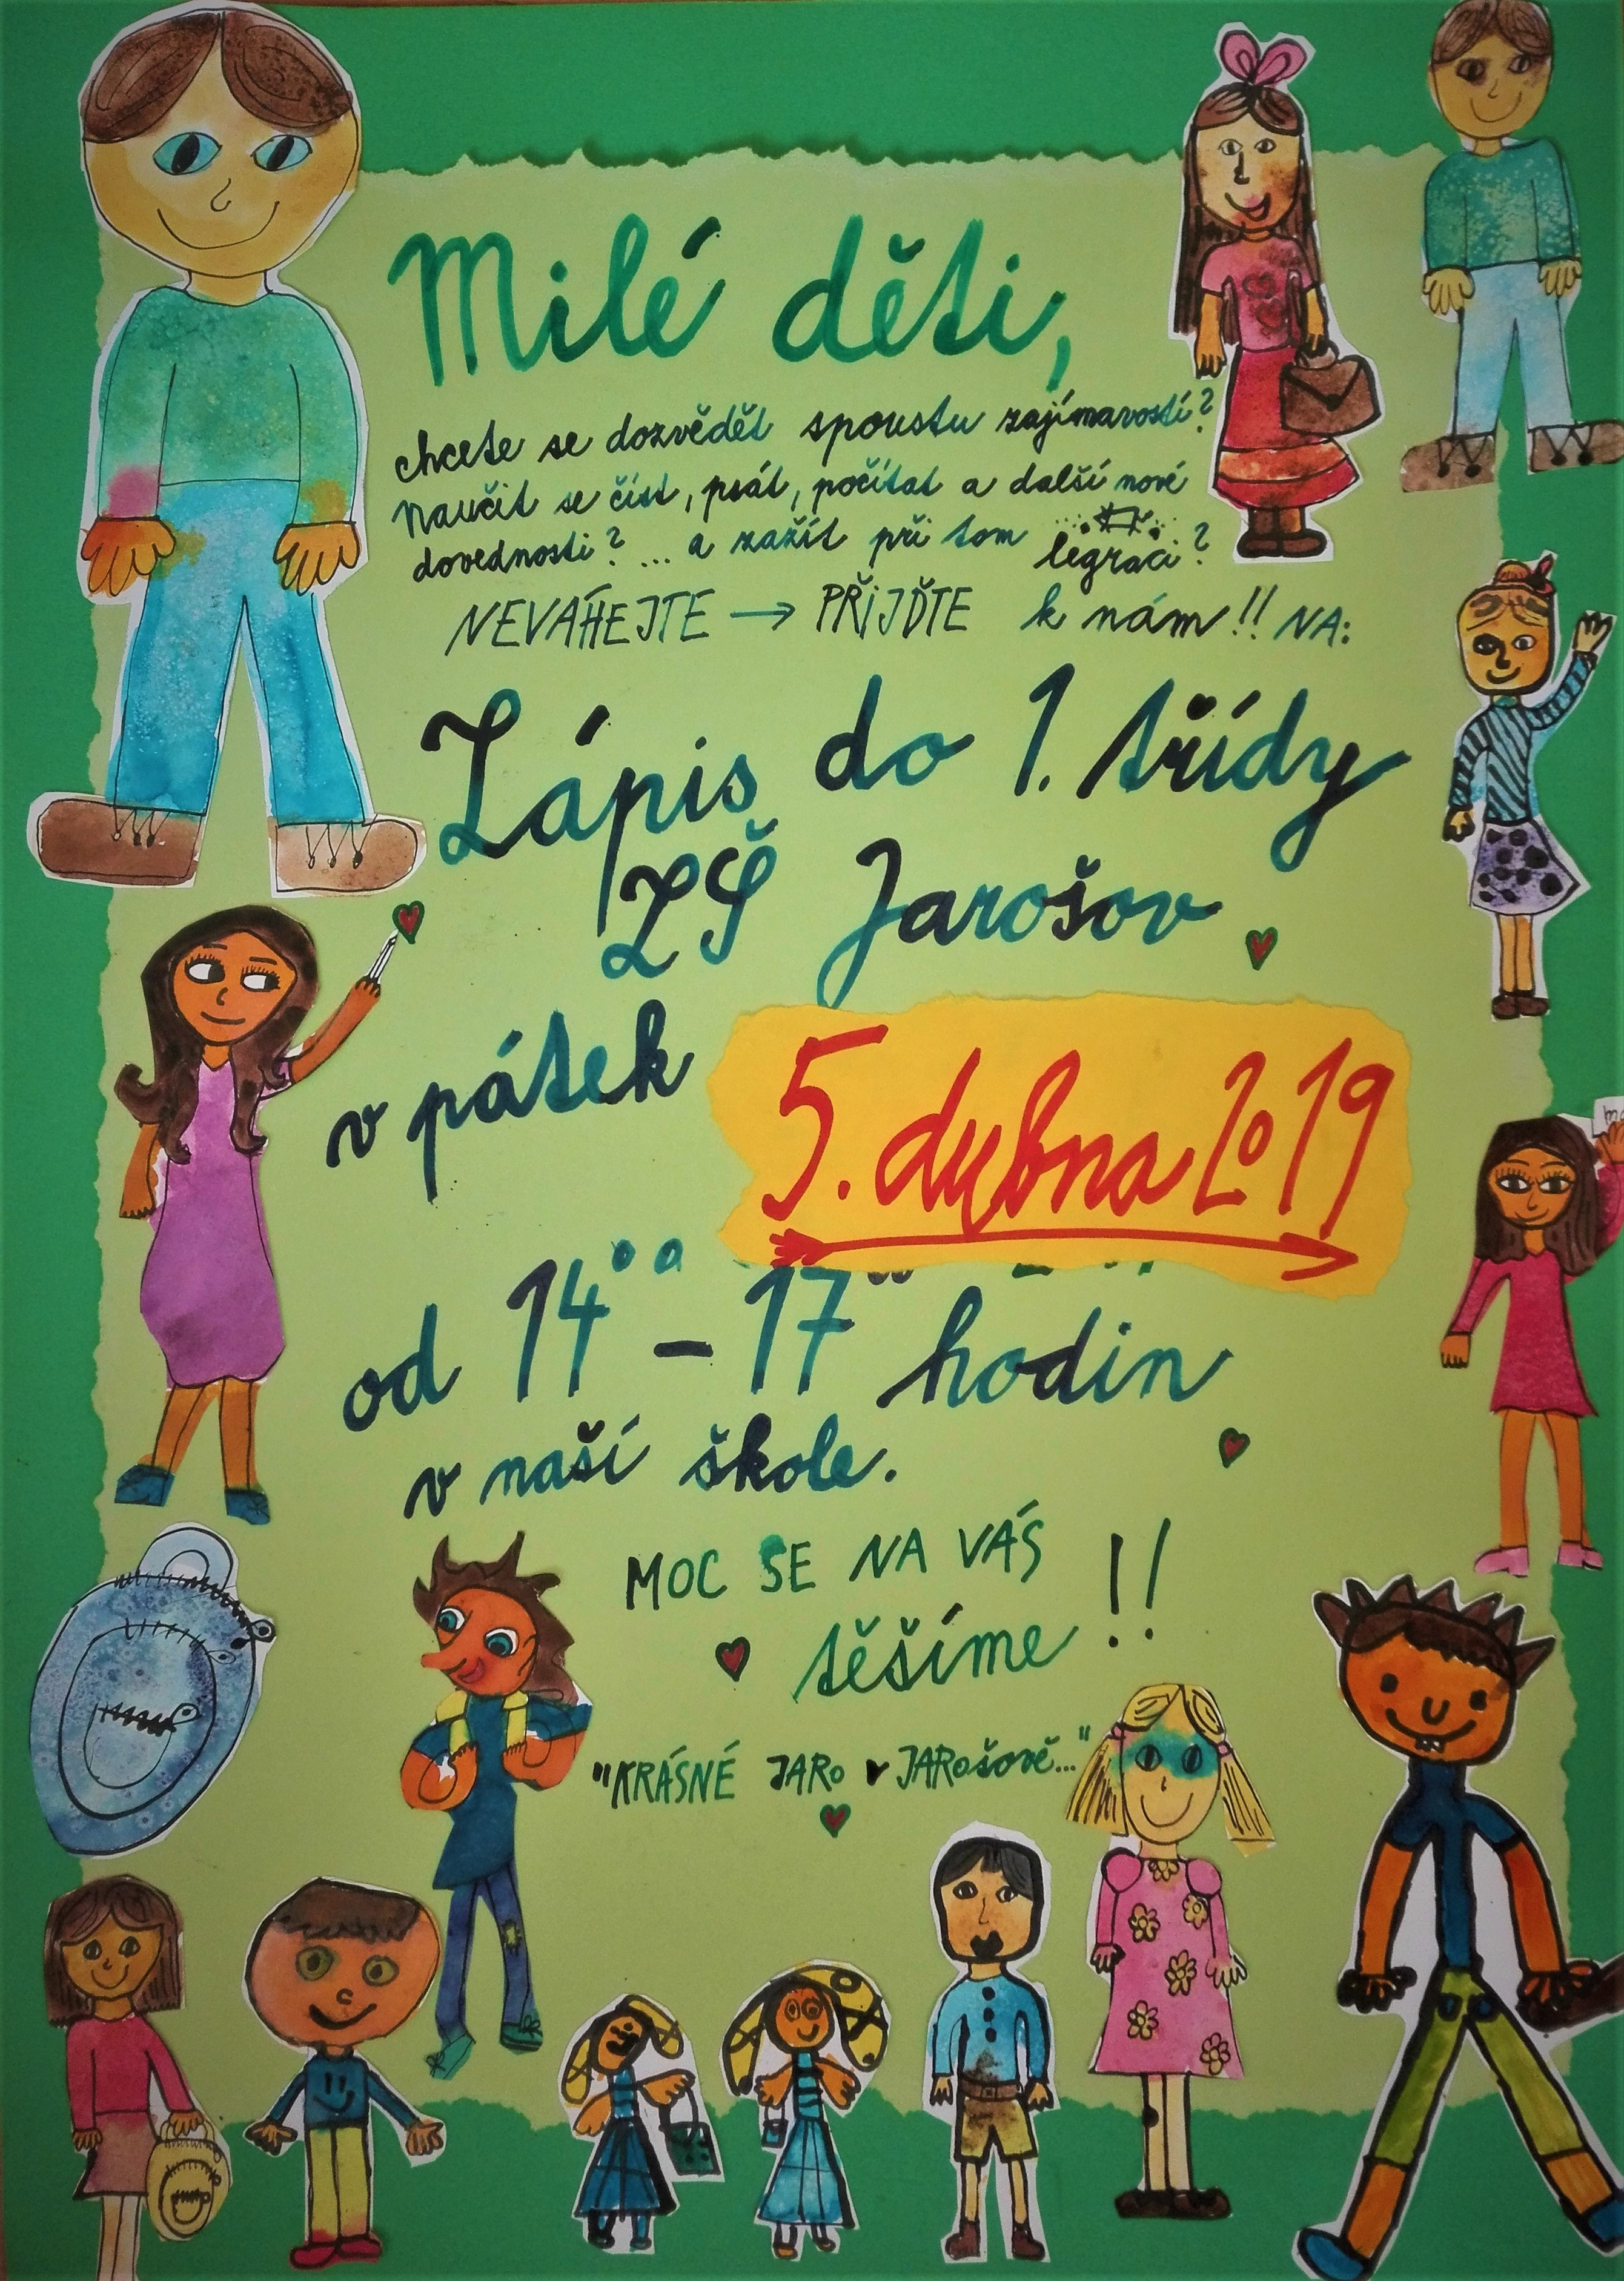 Milé děti,
chcete se dozvědět spoustu zajímavostí?
Naučit se číst, psát, počítat a další nové
dovednosti? ... a zažít při tom legraci?
NEVÁHEJTE → PŘIJĎTE k nám!! NA:
Zápis do 1. třídy
ZŠ Jarošov
v pátek 5. dubna 2019
od 14⁰⁰ - 17⁰⁰ hodin
v naší škole.
MOC SE NA VÁS
těšíme!!
"KRÁSNÉ JARo v JARošově..."